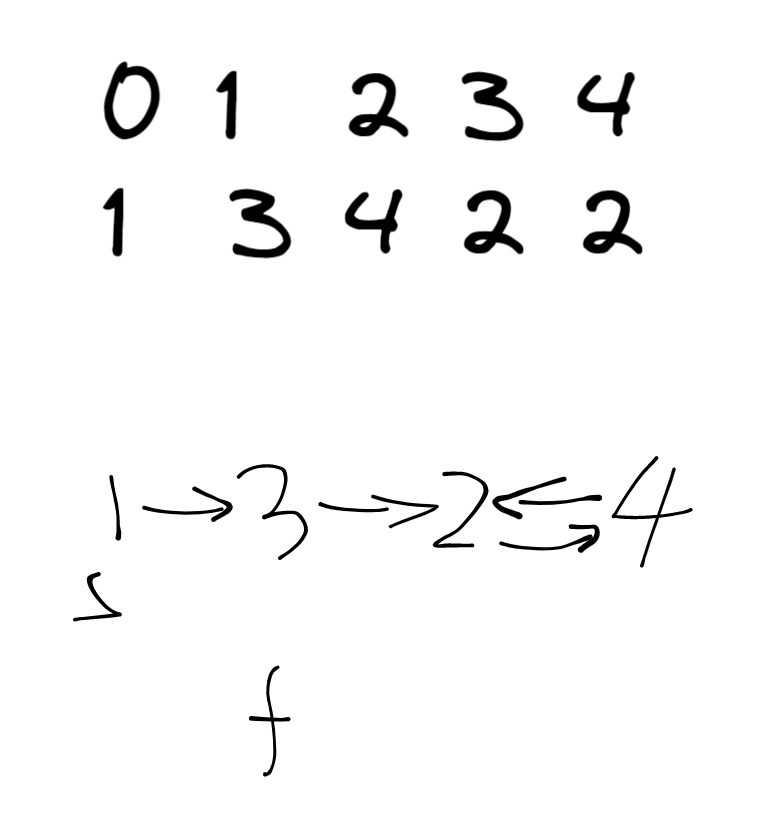 0 1 2 3 4
1 3 4 2 2
1 → 3 → 2 ⇆ 4
s
f